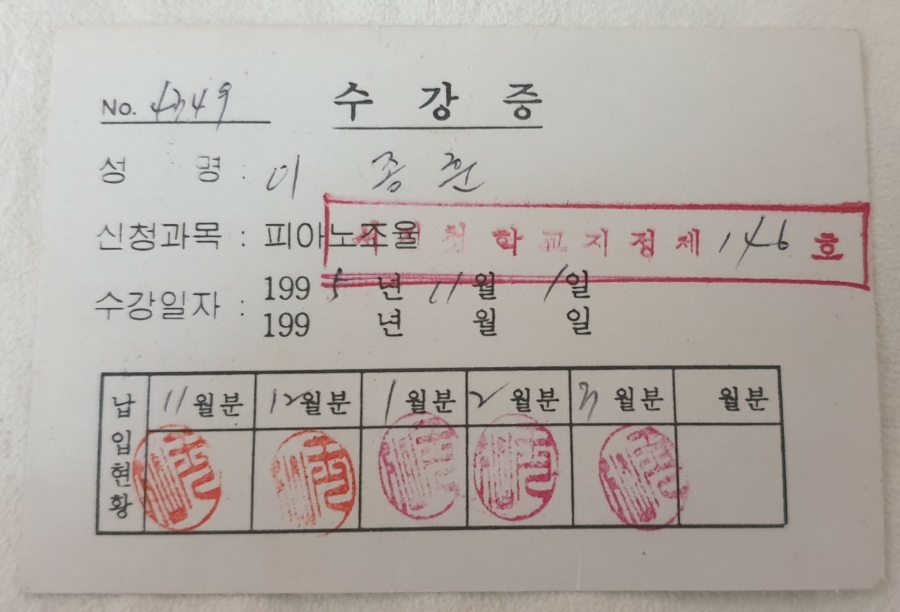 No. 4349
수 강 증
성 명 : 이 종 환
신청과목 : 피아노조율
학교지정제 146 호
수강일자 : 1995년 11월 1일
199 년 월 일
납입현황
11월분 12월분 1월분 2월분 3월분 월분